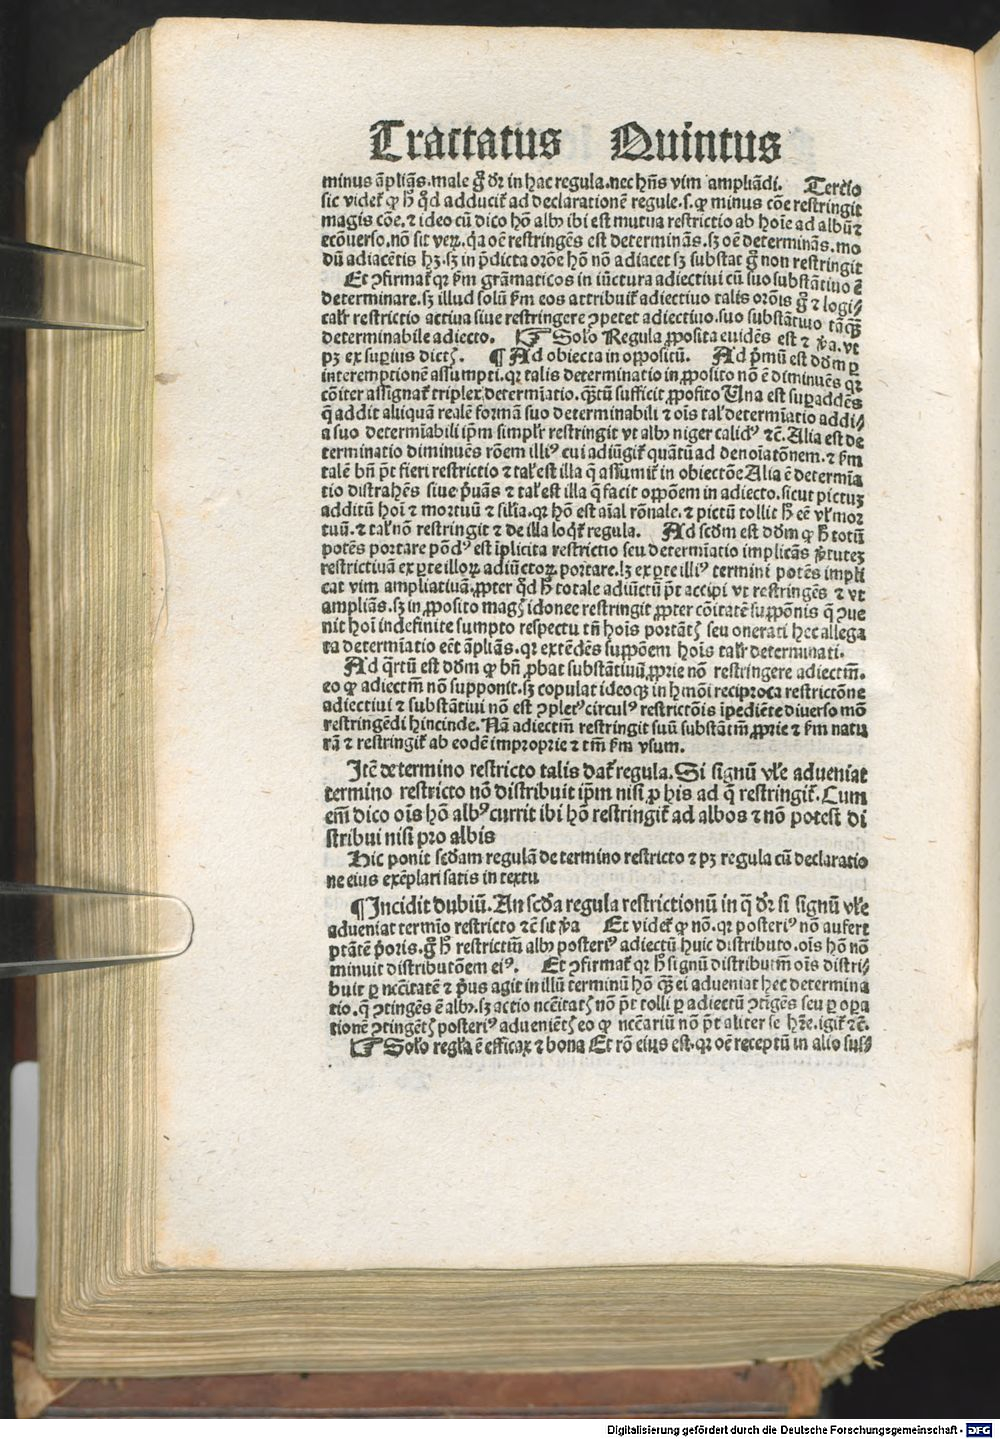 Tractatus Quintus
minus āpliās. male gͦ dr̄ in hac regula. nec hn̄s vim ampliādi. Tercio
sic videt̄ ꝙ hͦ qͦd adducit̄ ad declarationē regule. s. ꝙ minus cōe restringit
magis cōe. ⁊ ideo cū dico hō albꝰ ibi est mutua restrictio ab hoīe ad albū ⁊
ecōuerso. nō sit veꝝ. qͥa oē restringēs est determināς. sꝫ oē determinās. mo
dū adiacētis hꝫ. sꝫ in p̄dicta orōe hō nō adiacet sꝫ substat gͦ non restringit
Et ꝯfirmat̄ qꝛ ẜm grāmaticos in iūctura adiectiui cū suo substātiuo ē
determinare. sꝫ illud solū ẜm eos attribuit̄ adiectiuo talis orōis gͦ ⁊ logi⸗
calr̄ restrictio actiua siue restringere ꝯpetet adiectiuo. suo substātiuo tāꝙ̄
determinabile adiecto. ☞ Solꝰo Regula ꝓposita euidēs est ⁊ ꝟa. vt
pꝫ ex supius dictꝭ. ¶ Ad obiecta in oppositū. Ad p̄mū est dōm ꝑ
interemptionē assumpti. qꝛ talis determinatio in ꝓposito nō ē diminuēs qꝛ
cōiter assignat̄ triplex determīatio. qͣtū sufficit ꝓposito Una est suꝑaddēs
q̄ addit aliquā realē formā suo determinabili ⁊ oīs tal̄ determīatio addi⸗
a suo determīabili ip̄m simplr̄ restringit vt albꝰ niger calidꝰ ⁊c̄. Alia est de
terminatio diminuēs rōem illiꝰ cui adiūgit̄ quātū ad denoīatōnem. ⁊ ẜm
talē bn̄ pt̄ fieri restrictio ⁊ tal̄ est illa q̄ assumit̄ in obiectōe Alia ē determīa
tio distrahēs siue p̄uās ⁊ tal̄ est illa q̄ facit oppōem in adiecto. sicut pictuꝫ
additū hoī ⁊ mortuū ⁊ sil̄ia. qꝛ hō est aīal rōnale. ⁊ pictū tollit hͦ eē vl̄ mor
tuū. ⁊ tal̄ nō restringit ⁊ de illa loqt̄ regula. Ad scd̄m est dōm ꝙ hͦ totū
potēs portare pōdꝰ est īplicita restrictio seu determīatio implicās ꝟtutez
restrictiuā ex ꝑte illoꝝ adiūctoꝝ portare. lꝫ ex ꝑte illiꝰ termini potēs impli
cat vim ampliatiuā. ꝓpter qͦd hͦ totale adiūctū pt̄ accipi vt restringēs ⁊ vt
ampliās. sꝫ in ꝓposito magꝭ idonee restringit ꝓpter cōitatē suppōnis q̄ ꝯue
nit hoī indefinite sumpto respectu tn̄ hoīs portātꝭ seu onerati hec allega
ta determīatio eēt āpliās. qꝛ extēdēs suppōem hoīs talr̄ determinati.
Ad qͣrtū est dōm ꝙ bn̄ ꝓbat substātiuū ꝓprie nō restringere adiectm̄.
eo ꝙ adiectm̄ nō supponit. sꝫ copulat ideoqꝫ in hmōi reciproca restrictōne
adiectiui ⁊ substātiui nō est ꝯpletꝰ circulꝰ restrictōis īpediēte diuerso mōo
restringēdi hincinde. Nā adiectm̄ restringit suū substātm̄ ꝓprie ⁊ ẜm natu
rā ⁊ restringit̄ ab eodē improprie ⁊ tm̄ ẜm vsum.
Itē de termino restricto talis dat̄ regula. Si signū vl̄e adueniat
termino restricto nō distribuit ip̄m nisi ꝓ his ad q̄ restringit̄. Cum
em̄ dico oīs hō albꝰ currit ibi hō restringit̄ ad albos ⁊ nō potest di
stribui nisi pro albis
Hic ponit scd̄am regulā de termino restricto ⁊ pꝫ regula cū declaratio
ne eius exēplari satis in textu
¶ Incidit dubiū. An scd̄a regula restrictionū in q̄ dr̄ si signū vl̄e
adueniat termīo restricto ⁊c̄ sit ꝟa Et videt̄ ꝙ nō. qꝛ posteriꝰ nō aufert
ptātē p̄oris. gͦ hͦ restrictm̄ albꝰ posteriꝰ adiectū huic distributo. oīs hō nō
minuit distributōem eiꝰ. Et ꝯfirmat̄ qꝛ hͦ signū distributm̄ oīs distri⸗
buit ꝑ ncc̄itatē ⁊ p̄us agit in illū terminū hō ꝙ̄ ei adueniat hec determina
tio. q̄ ꝯtingēs ē albꝰ. sꝫ actio ncc̄itatꝭ nō pt̄ tolli ꝑ adiectū ꝯtīgēs seu ꝑ oꝑa
tionē ꝯtingētꝭ posteriꝰ adueniētꝭ eo ꝙ ncc̄ariū nō pt̄ aliter se hr̄e. igit̄ ⁊c̄.
☞ Solꝰo regl̄a ē efficax ⁊ bona Et rō eius est. qꝛ oē receptū in alio sus⸗
Digitalisierung gefördert durch die Deutsche Forschungsgemeinschaft - DFG